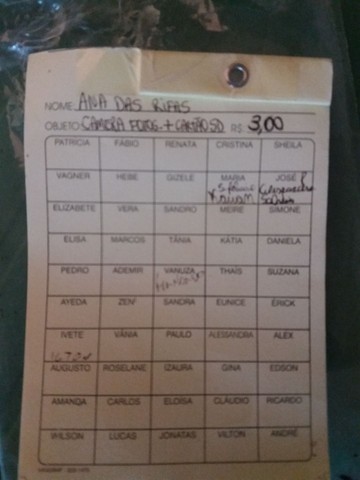 NOME: ANA DAS RIFAS
OBJETO: CÂMERA FOTOG. + CARTÃO SD R$ 3,00
PATRICIA FÁBIO RENATA CRISTINA SHEILA
VAGNER HEBE GIZELE MARIA JOSÉ
ELIZABETE VERA SANDRO MEIRE SIMONE
ELISA MARCOS TÂNIA KÁTIA DANIELA
PEDRO ADEMIR VANUZA THAIS SUZANA
AYEDA ZENº SANDRA EUNICE ÉRICK
IVETE VÂNIA PAULO ALESSANDRA ALEX
AUGUSTO ROSELANE IZAURA GINA EDSON
AMANDA CARLOS ELOISA CLÁUDIO RICARDO
WILSON LUCAS JONATAS VILTON ANDRÉ